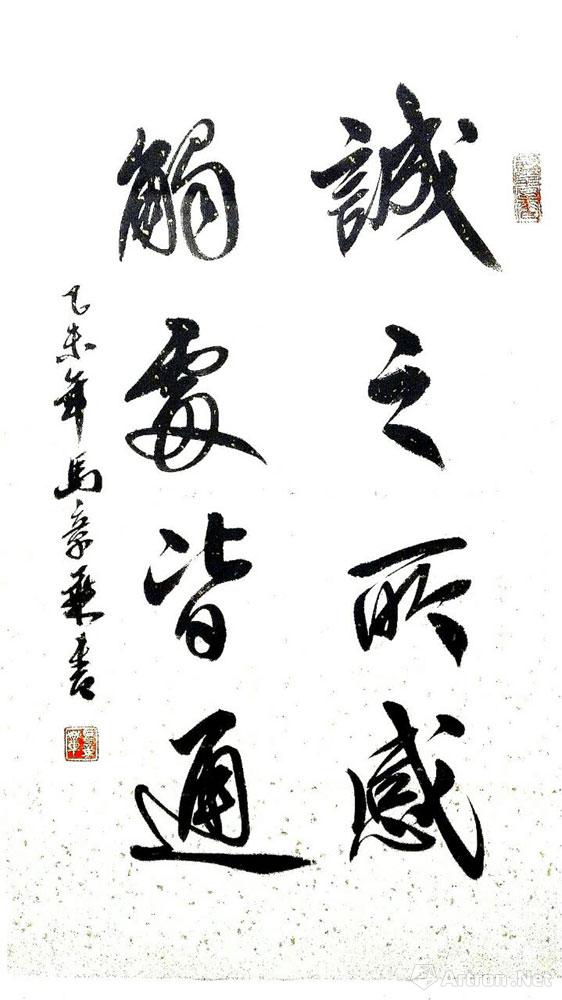 誠之所感
觸處皆通
乙未年馬章乘書
Artron.Net